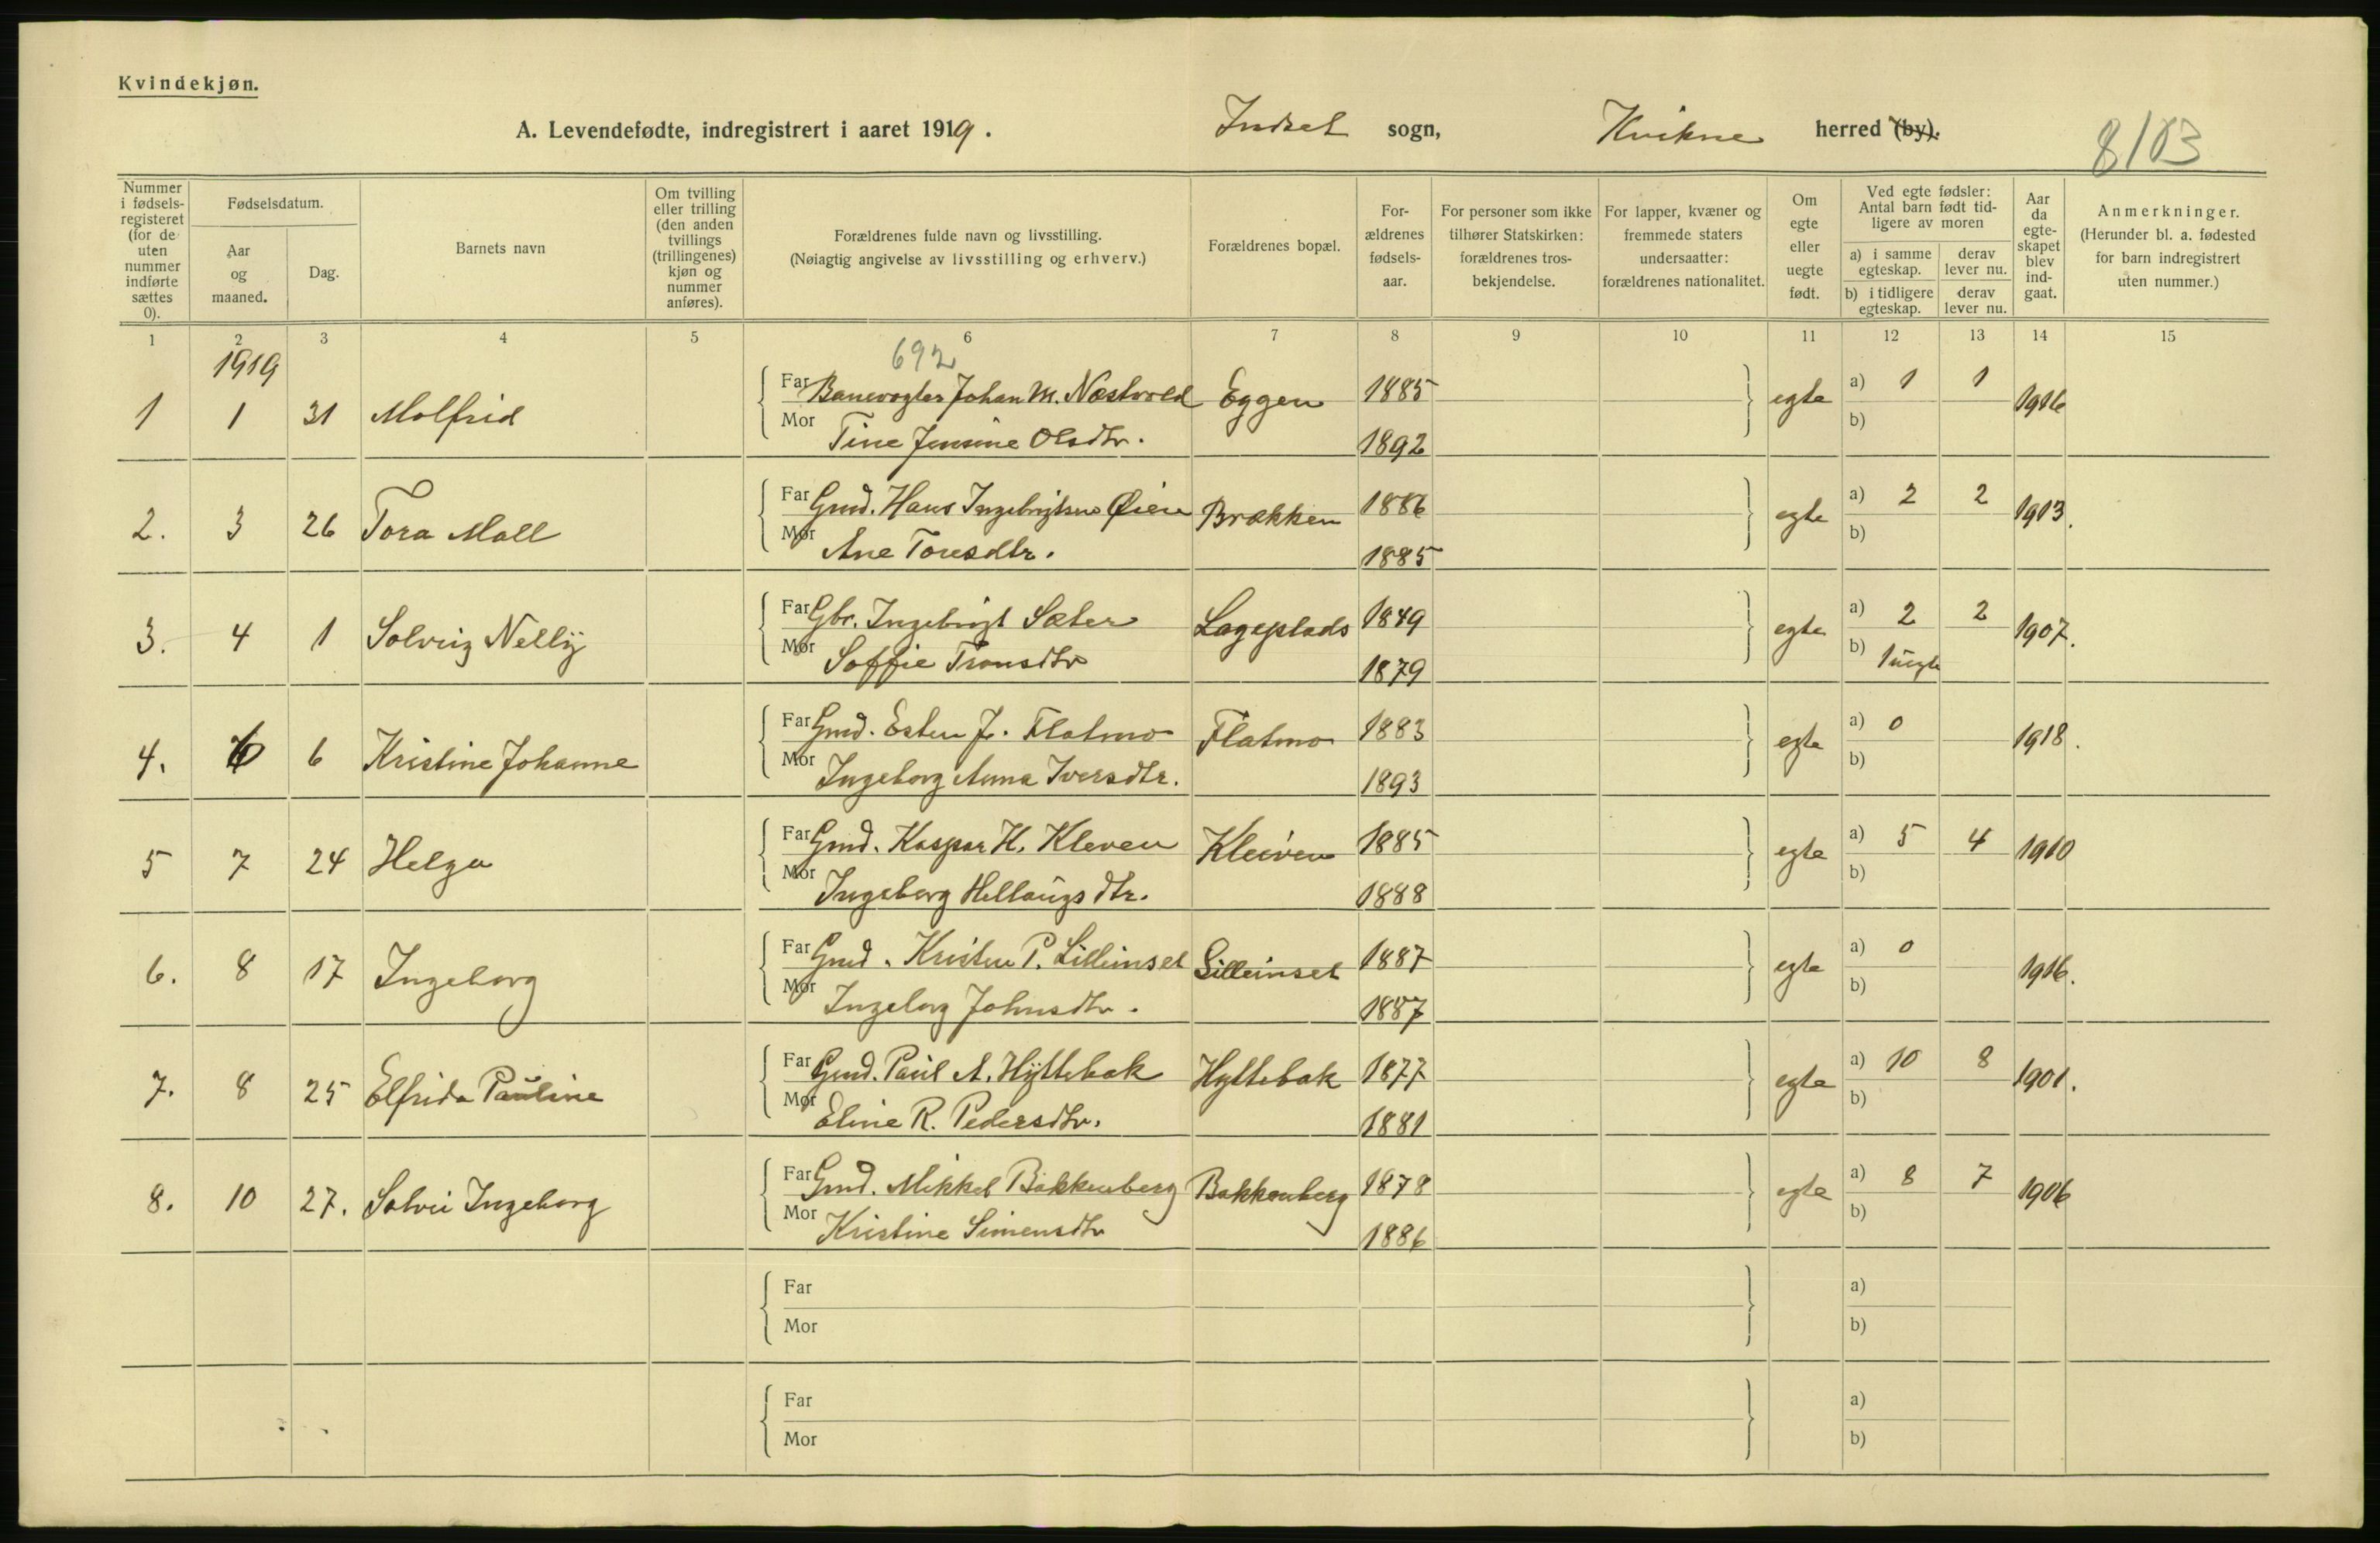 Kvindekjøn.
A. Levendefødte, indregistrert i aaret 1919. Indset sogn, Kvikne herred (by). 8/103
Nummer i fødsels-registeret (for de uten nummer indførte sættes 0).
Fødselsdatum.
Aar og maaned.
Dag.
Barnets navn
Om tvilling eller trilling (den anden tvillings (trillingenes) kjøn og nummer anføres).
Forældrenes fulde navn og livsstilling.
(Nøiagtig angivelse av livsstilling og erhverv.)
Forældrenes bopæl.
For-ældrenes fødsels-aar.
For personer som ikke tilhører Statskirken: forældrenes tros-bekjendelse.
For lapper, kvæner og fremmede staters undersaatter: forældrenes nationalitet.
Om egte eller uegte født.
Ved egte fødsler: Antal barn født tid-ligere av moren
a) i samme egteskap.
derav lever nu.
b) i tidligere egteskap.
derav lever nu.
Aar da egte-skapet blev ind-gaat.
Anmerkninger.
(Herunder bl. a. fødested for barn indregistrert uten nummer.)
1 2 3 4 5 6 7 8 9 10 11 12 13 14 15
1919 692
1 1 31 Molfrid Far Banevogter Johan M. Næstvold Eggen 1885 egte a) 1 1 1916
Mor Tine Jensine Olsdtr. 1892 b)
2. 3 26 Tora Moll Far Gmd. Hans Ingebrigtsen Øien Brækken 1886 egte a) 2 2 1913.
Mor Ane Toresdtr. 1885 b)
3. 4 1 Solveig Nelly Far Gbr. Ingebrigt Sæter Lageplads 1849 egte a) 2 2 1907.
Mor Soffie Tronsdtr 1879 b) 1 uegte
4. 6 6 Kristine Johanne Far Gmd. Esten J. Flatmo Flatmo 1883 egte a) 0 1918.
Mor Ingeborg Anna Iversdtr. 1893 b)
5 7 24 Helga Far Gmd. Kaspar H. Kleven Kleiven 1885 egte a) 5 4 1910
Mor Ingeborg Hellaugsdtr. 1888 b)
6. 8 17 Ingeborg Far Gmd. Kristen P. Lilleinset Lilleinset 1887 egte a) 0 1916.
Mor Ingeborg Johnsdtr. 1887 b)
7. 8 25 Elfrida Pauline Far Gmd. Paul A. Hyttebak Hyttebak 1877 egte a) 10 8 1901.
Mor Eline R. Pedersdtr. 1881 b)
8. 10 27. Solvei Ingeborg Far Gmd. Mikkel Bakkenberg Bakkenberg 1878 egte a) 8 7 1906
Mor Kristine Simensdtr 1886 b)
Far a)
Mor b)
Far a)
Mor b)